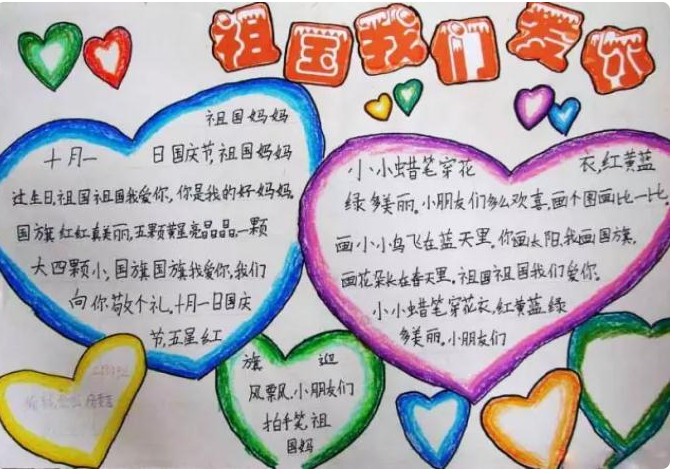 祖国我们爱你
祖国妈妈
十月一 日国庆节,祖国妈妈
过生日,祖国祖国我爱你,你是我的好妈妈。
国旗红红真美丽,五颗黄星亮晶晶,一颗
大四颗小,国旗国旗我爱你,我们
向你敬个礼,十月一日国庆
节,五星红
旗 迎
风飘飘,小朋友们
拍手笑,祖
国妈
小小蜡笔穿花 衣,红黄蓝
绿多美丽。小朋友们多么欢喜,画个图画比一比,
画小小鸟飞在蓝天里,你画太阳,我画国旗,
画花朵长在春天里。祖国祖国我们爱你。
小小蜡笔穿花衣,红黄蓝绿
多美丽。小朋友们